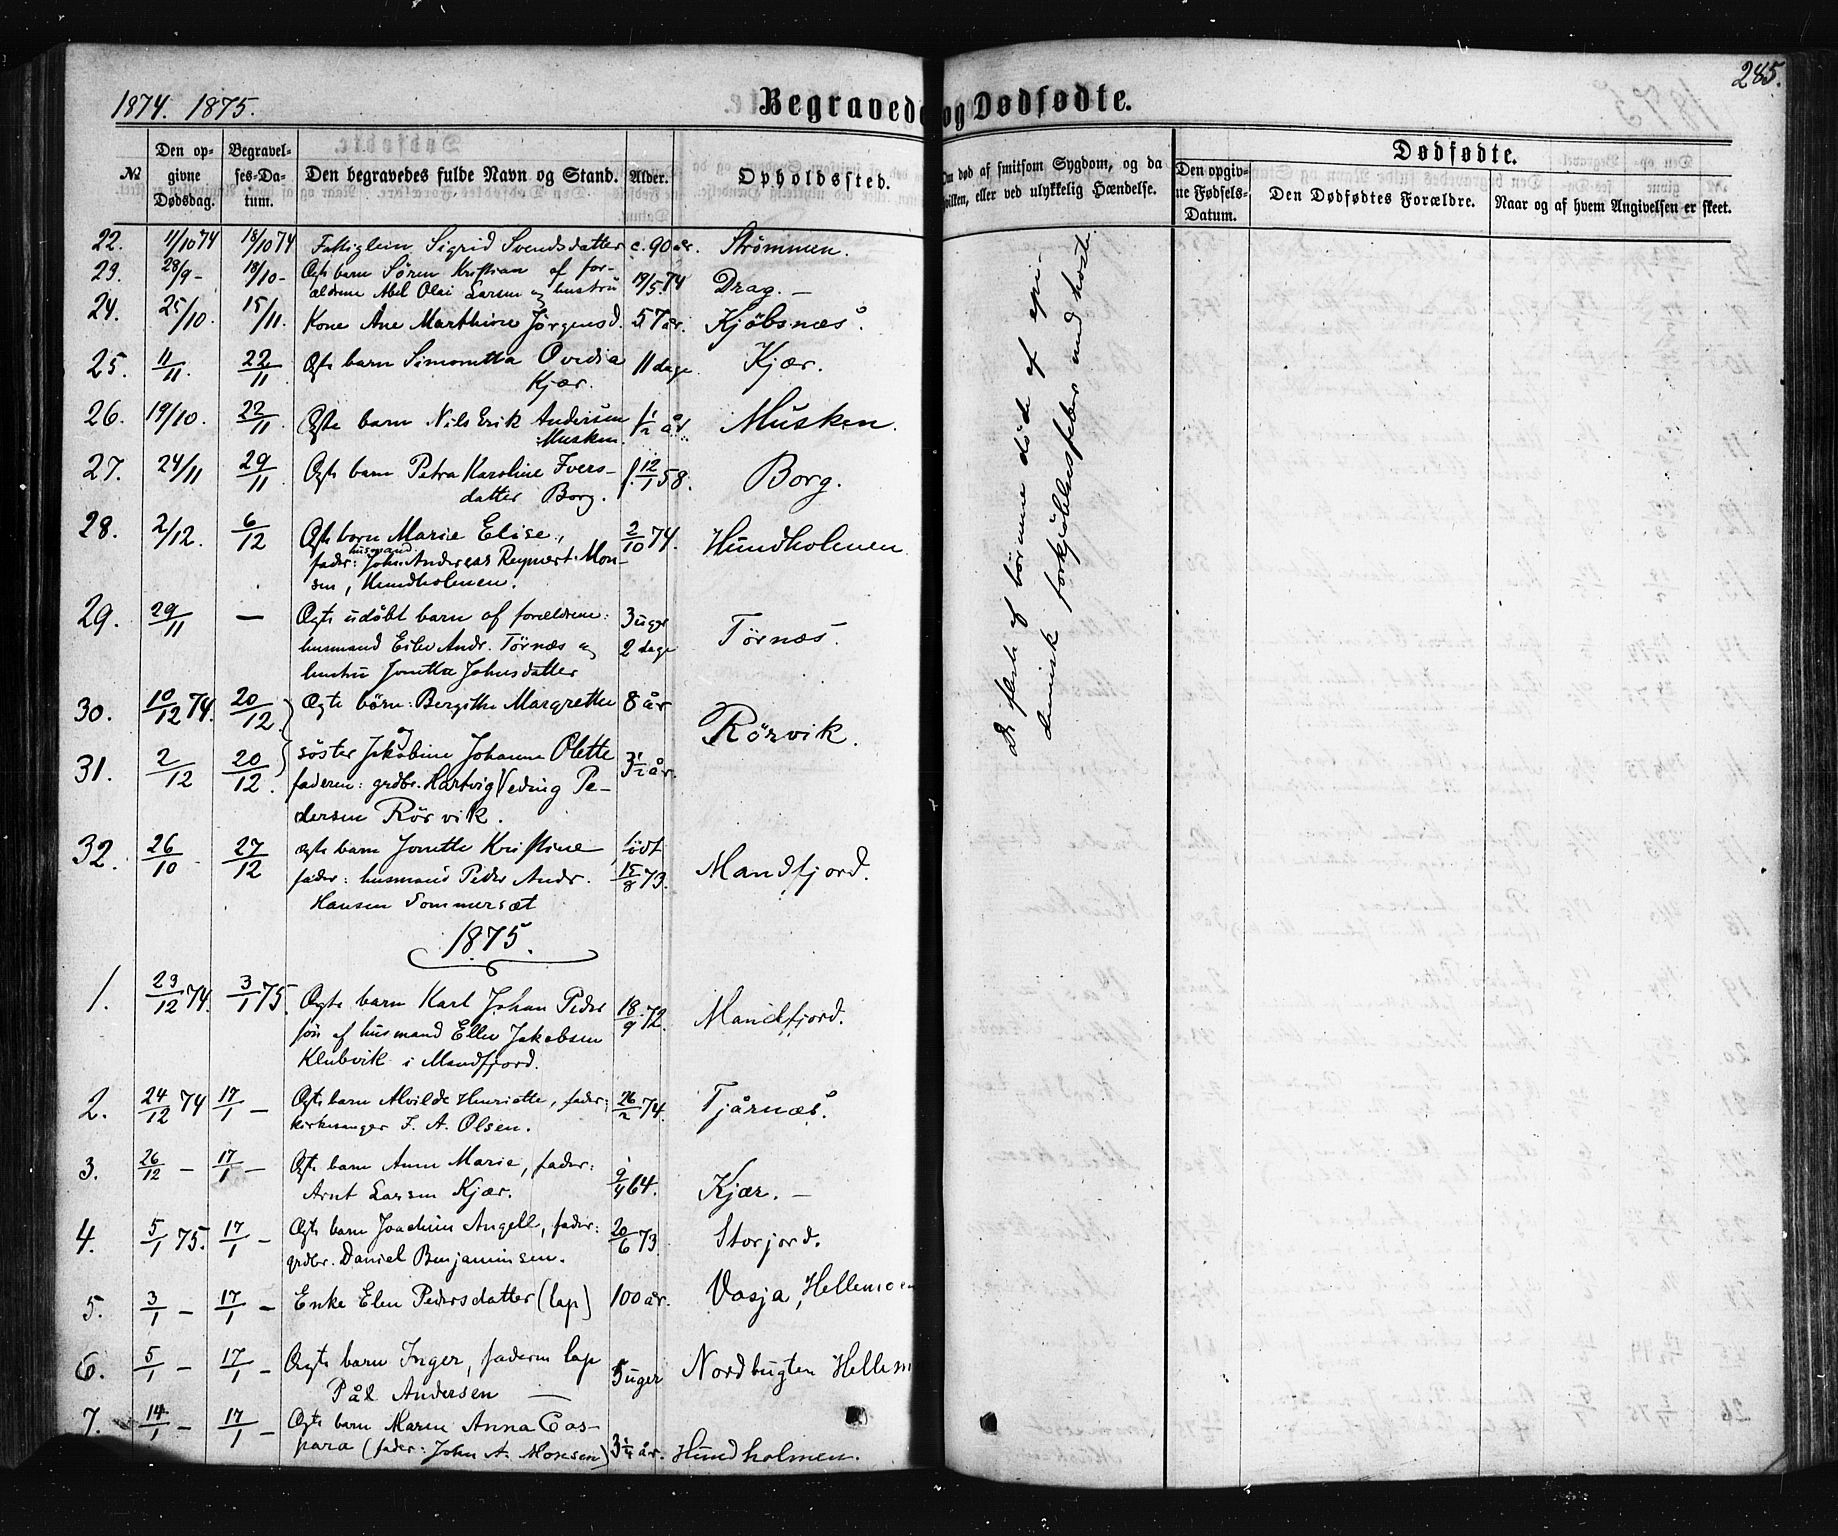 285.
1874. 1875.
Begravede og Dødfødte.
№
Den opgivne Dødsdag.
Begravelses-Datum.
Den begravedes fulde Navn og Stand.
Alder.
Opholdssted.
Om død af smitsom Sygdom, og da hvilken, eller ved ulykkelig Hændelse.
Dødfødte.
Den opgivne Fødsels-Datum.
Den Dødfødtes Forældre.
Naar og af hvem Angivelsen er skeet.
22. 11/10 74 18/10 74 Sigrid Svendsdatter c. 90 år. Strømmen.
23. 28/9 - 18/10 - Ægte barn Søren Kristian af for-
ældrene Abel Olai Larsen og hustru 19/5 74 Drag. —
24. 25/10. 15/11. Kone Ane Marthine Jørgensd. 57 år. Kjøbsnæs.
25. 11/11. 22/11. Ægte barn Simonetta Ovedia
Kjær. 11 dage. Kjær.
26. 19/10. 22/11. Ægte barn Nils Erik Andersen
Musken. 1/2 år. Musken.
27. 24/11 29/11 Ægte barn Petra Karoline Ivers-
datter Borg. f. 12/1 58. Borg.
28. 2/12. 6/12 Ægte barn Marie Elise,
fader: husmand John Andreas Reynert Mon-
sen, Hundholmen. 2/10 74. Hundholmen
29. 29/11 — Ægte udøbt barn af forældrene:
husmand Eilev Andr. Tørnæs og
hustru Jonetta Johnsdatter 3 uger
2 dage Tørnæs.
30. 10/12 74. 20/12 Ægte børn: Bergithe Margrethe 8 år
og
31. 2/12 20/12. søster Jakobine Johanna Olette 3 1/2 år. Rörvik.
faderen: grdbr. Hartvig Weding Pe-
dersen Rörvik.
32. 26/10 - 27/12 ægte barn Jonette Kristine
fader: husmand Peder Andr.
Hansen Sommersæt født
15/8 73. Mandfjord.
1875.
1. 23/12 74. 3/1 75. Ægte barn Karl Johan Peder
søn af husmand Eller Jakobsen
Klubvik i Mandfjord. 18/9 72. Mandfjord.
2. 24/12 74 17/1 — Ægte barn Alvilde Henriette, fader:
kirkesanger F. A. Olsen. 26/2 74. Tjårnæs.
3. 26/12 — 17/1 — Ægte barn Anne Marie, fader:
Arnt Larsen Kjær. 9/4 64. Kjær. —
4. 5/1 75. 17/1 — Ægte barn Joachim Angell, fader:
grdbr. Daniel Benjaminsen. 20/6 73. Storjord.
5. 3/1 — 17/1 — Enke Elen Pedersdatter (lap) 100 år. Vasja, Hellemoen
6. 5/1 — 17/1 — Ægte barn Inger, faderen lap
Pål Andersen — 5 uger Nordbugten Hellem
7. 14/1 — 17/1 — Ægte barn Maren Anna Cas-
para (fader: John A. Monsen) 3 1/4 år. Hundholmen.
De fleste af børnene døde af epi-
demisk forkjølelsesfeber med hoste